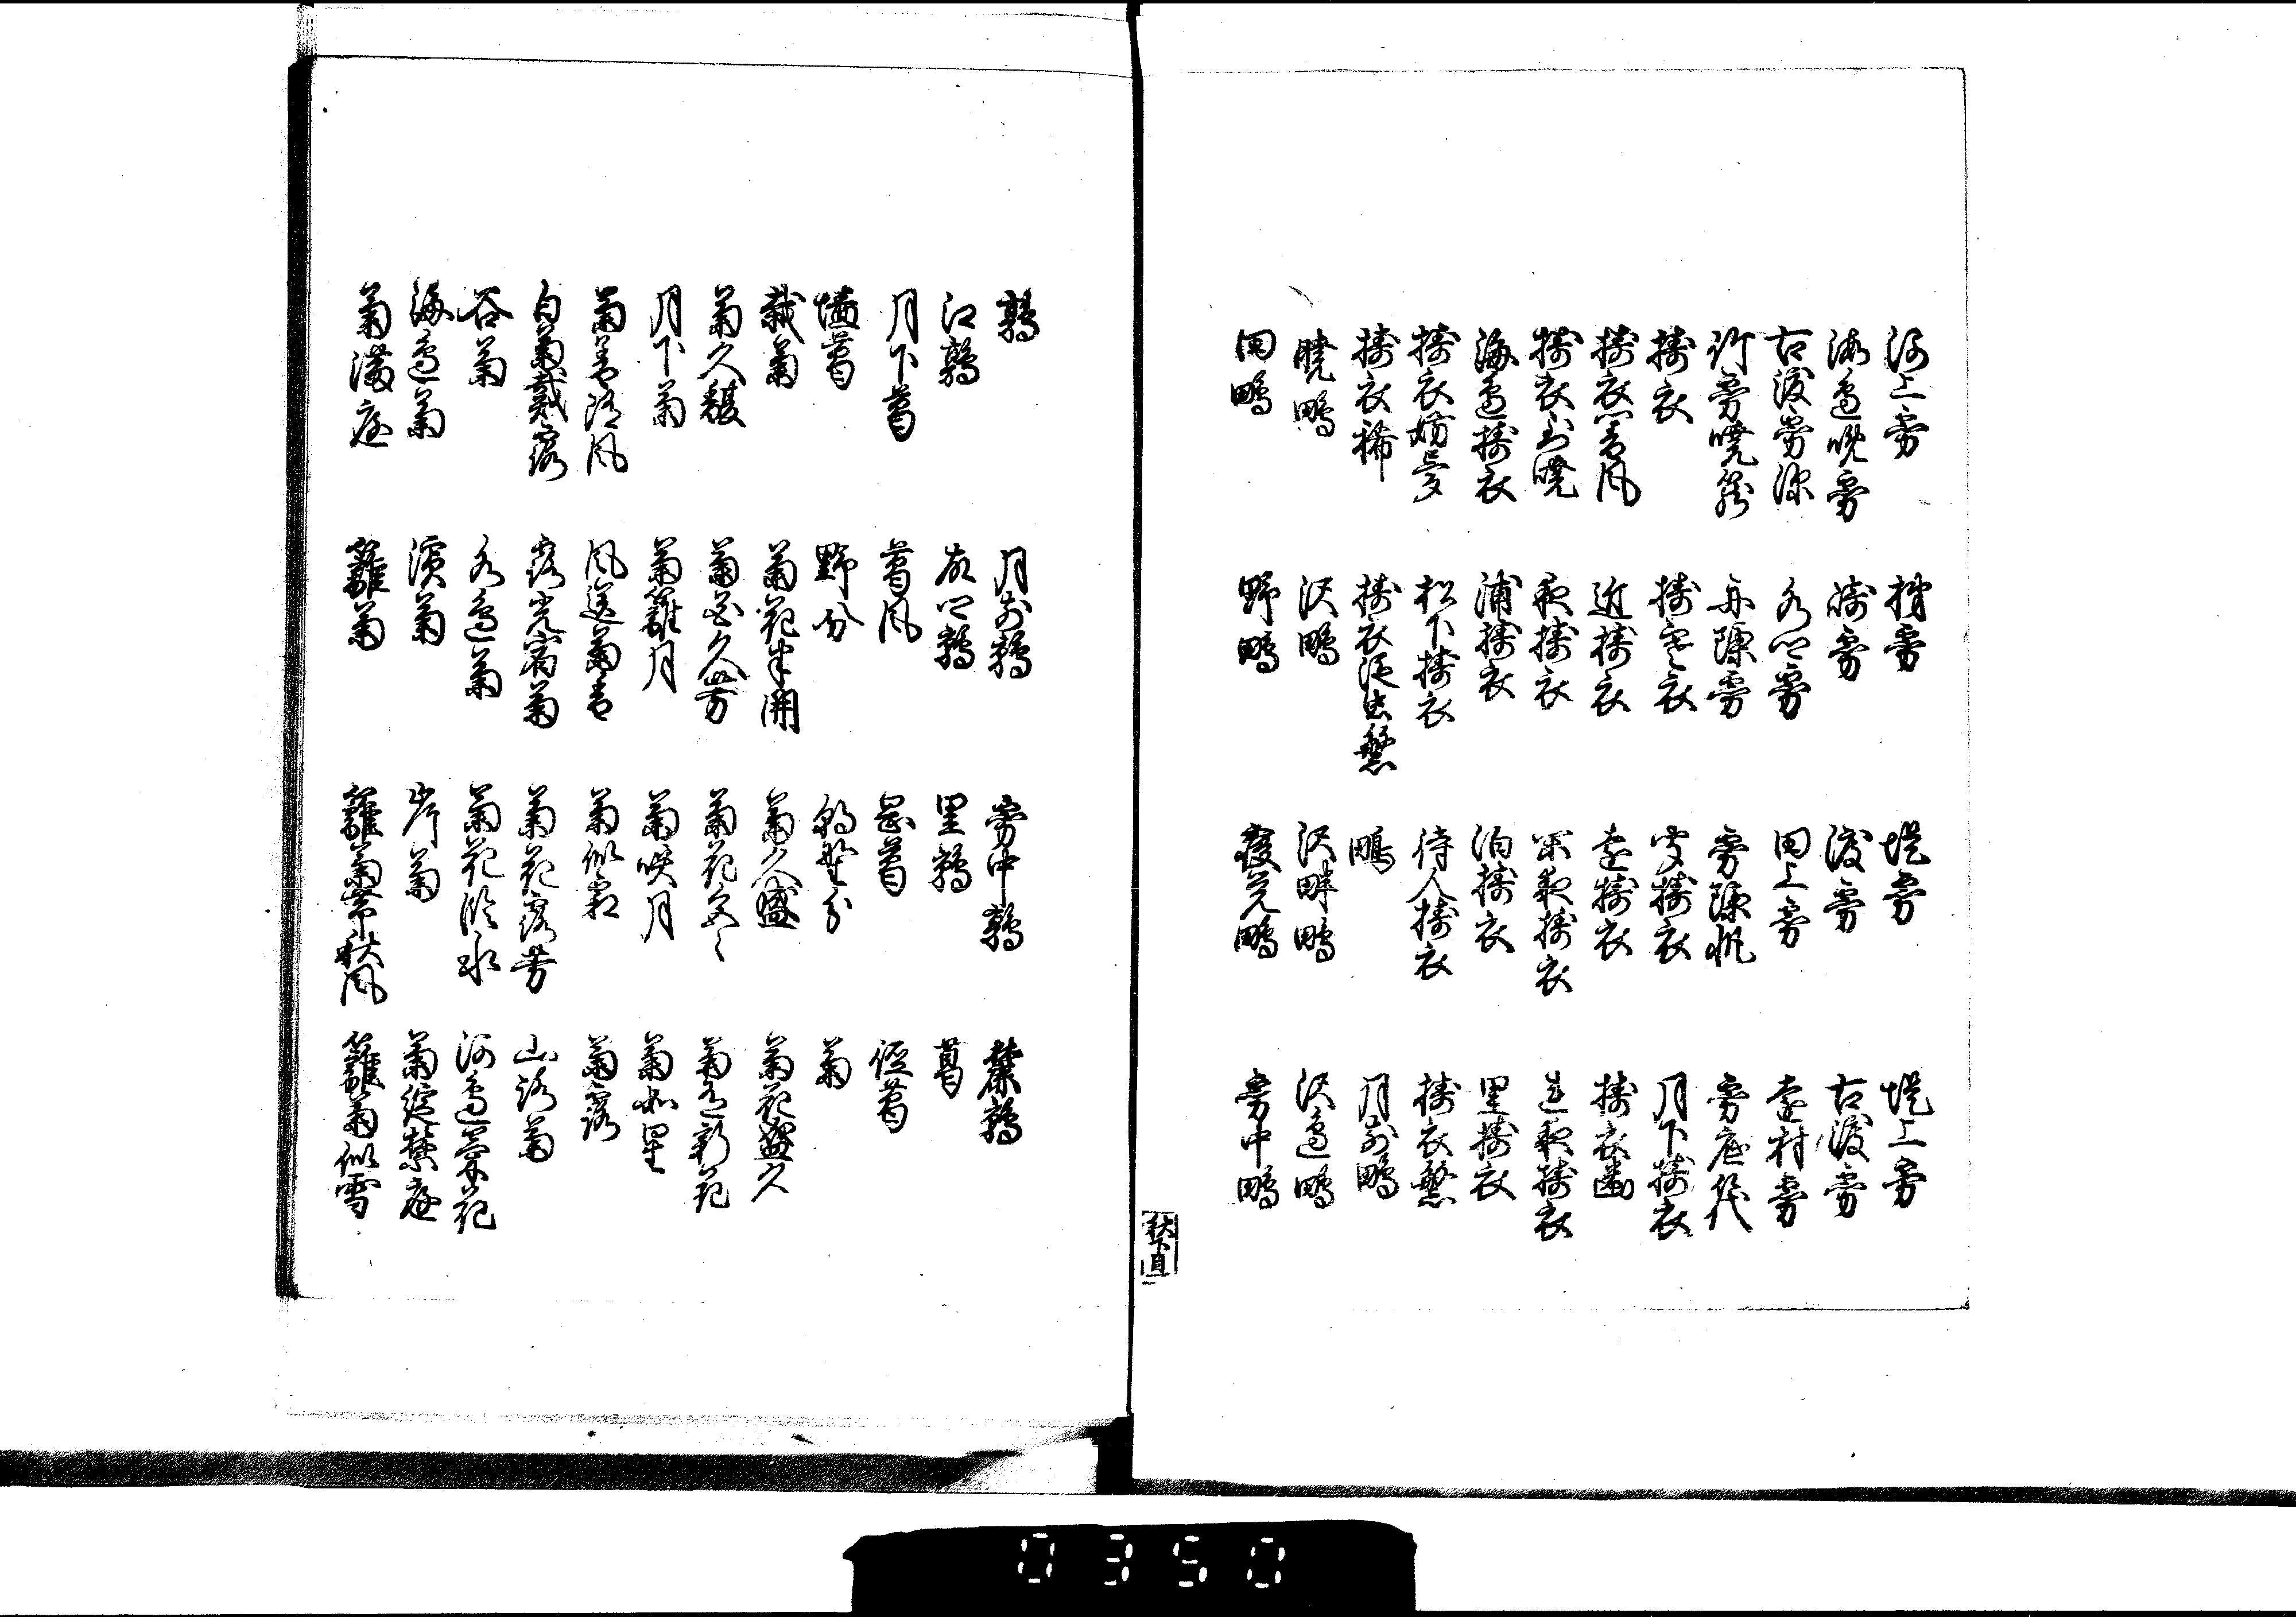 河上霧　橋霧　堤霧　堤上霧
海辺晩霧　崎霧　渡霧　古渡霧
古渡霧深　水郷霧　田上霧　遠村霧
竹霧暁籠　舟隔霧　霧隔帆　霧底筏
擣衣　擣寒衣　聞擣衣　月下擣衣
擣衣寄風　近擣衣　遠擣衣　擣衣幽
擣衣到暁　夜擣衣　深夜擣衣　連夜擣衣
海辺擣衣　浦擣衣　泊擣衣　里擣衣
擣衣妨夢　松下擣衣　待人擣衣　擣衣繁
擣衣稀　擣衣混虫　鴫　月前鴫
暁鴫　沢鴫　沢畔鴫　沢辺鴫
田鴫　野鴫　寝覚鴫　霧中鴫
鶉　月前鶉　霧中鶉　鶉
江鶉　故郷鶉　里鶉　葛
月下葛　葛風　岡葛　径葛
墻葛　野分　朝野分　菊
栽菊　菊花半開　菊久盛　菊花盛久
菊久馥　菊花久芳　菊花色々　菊有新花
月下菊　菊籬月　菊映月　菊如星
菊香随風　風送菊香　菊似霜　菊露
白菊戴露　露光宿菊　菊花露芳　山路菊
谷菊　水辺菊　菊花臨水　河辺菊花
海辺菊　浜菊　岸菊　菊綻禁庭
菊満庭　籬菊　籬菊帯秋風　籬菊似雪
0350